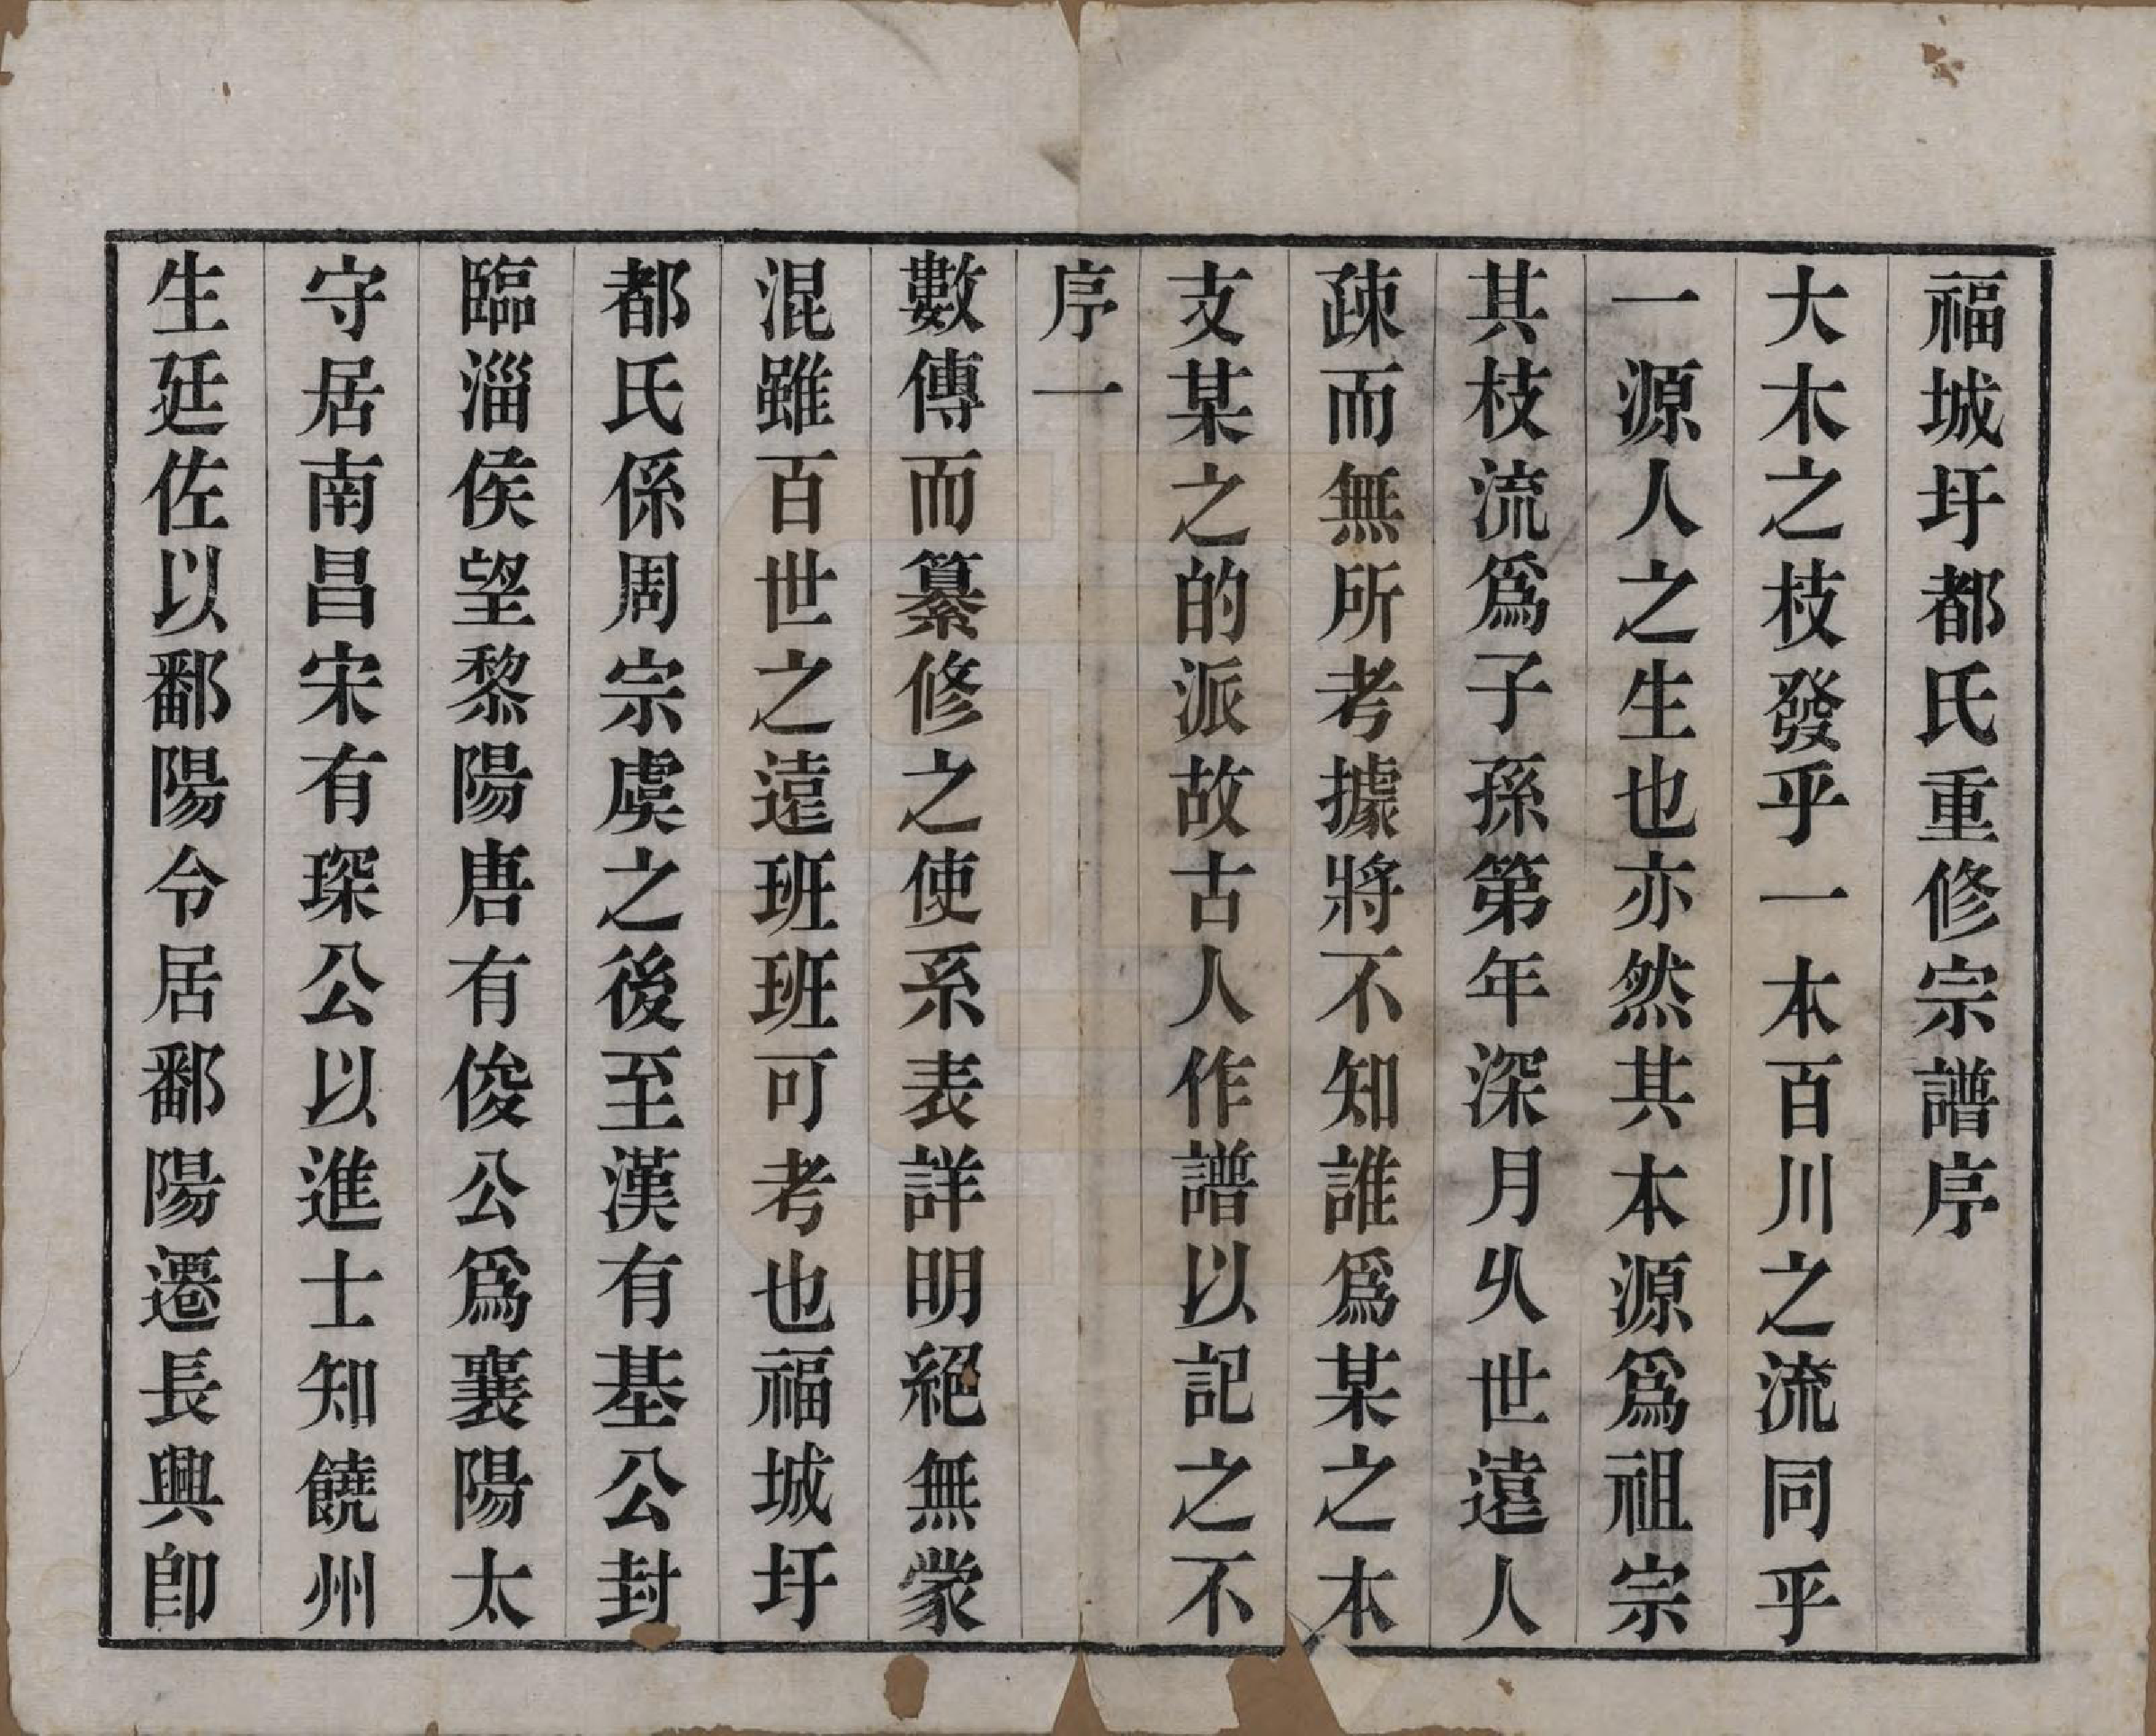 福城圩都氏重修宗譜序
大木之枝發乎一本百川之流同乎
一源人之生也亦然其本源爲祖宗
其枝流爲子孫第年深月乆世遠人
疎而無所考據將不知誰爲某之本
支某之的派故古人作譜以記之不
序一
數傳而纂修之使系表詳明絕無蒙
混雖百世之遠班班可考也福城圩
都氏係周宗虞之後至漢有基公封
臨淄侯望黎陽唐有俊公爲襄陽太
守居南昌宋有琛公以進士知饒州
生廷佐以鄱陽令居鄱陽遷長興卽